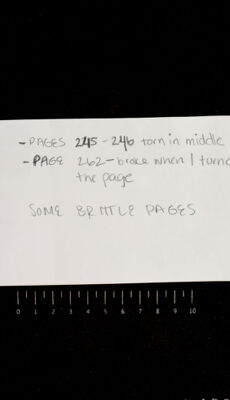 - PAGES 245 - 246 torn in middle
- PAGE 262 - broke when I turne
the page
SOME BRITTLE PAGES
0 1 2 3 4 5 6 7 8 9 10